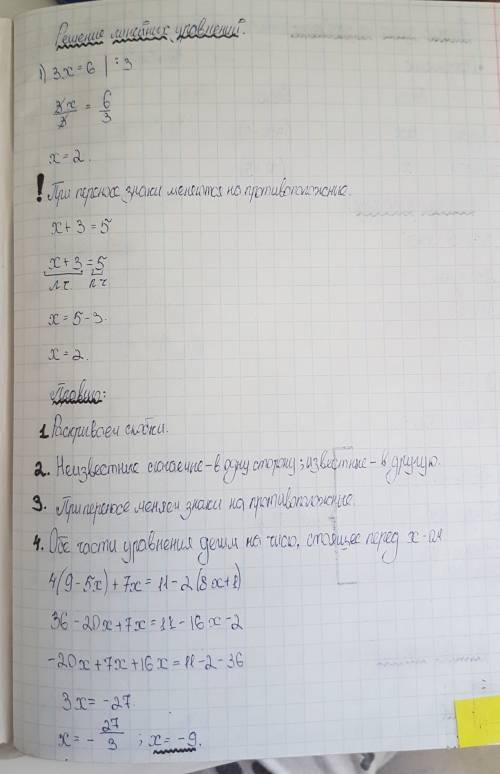 Решение линейных уравнений.
1) 3x=6 | :3
3x/3 = 6/3
x=2.
! При переносе знаки меняются на противоположные.
x+3=5
x+3=5
л.ч. п.ч
x=5-3.
x=2.
Правило:
1. Раскрываем скобки.
2. Неизвестные слагаемые - в одну сторону; известные - в другую.
3. При переносе меняем знаки на противоположные.
4. Обе части уравнения делим на число, стоящее перед x-ом
4(9-5x)+7x=11-2(8x+1)
36-20x+7x=11-16x-2
-20x+7x+16x=11-2-36
3x=-27.
x=-27/3 ; x=-9.